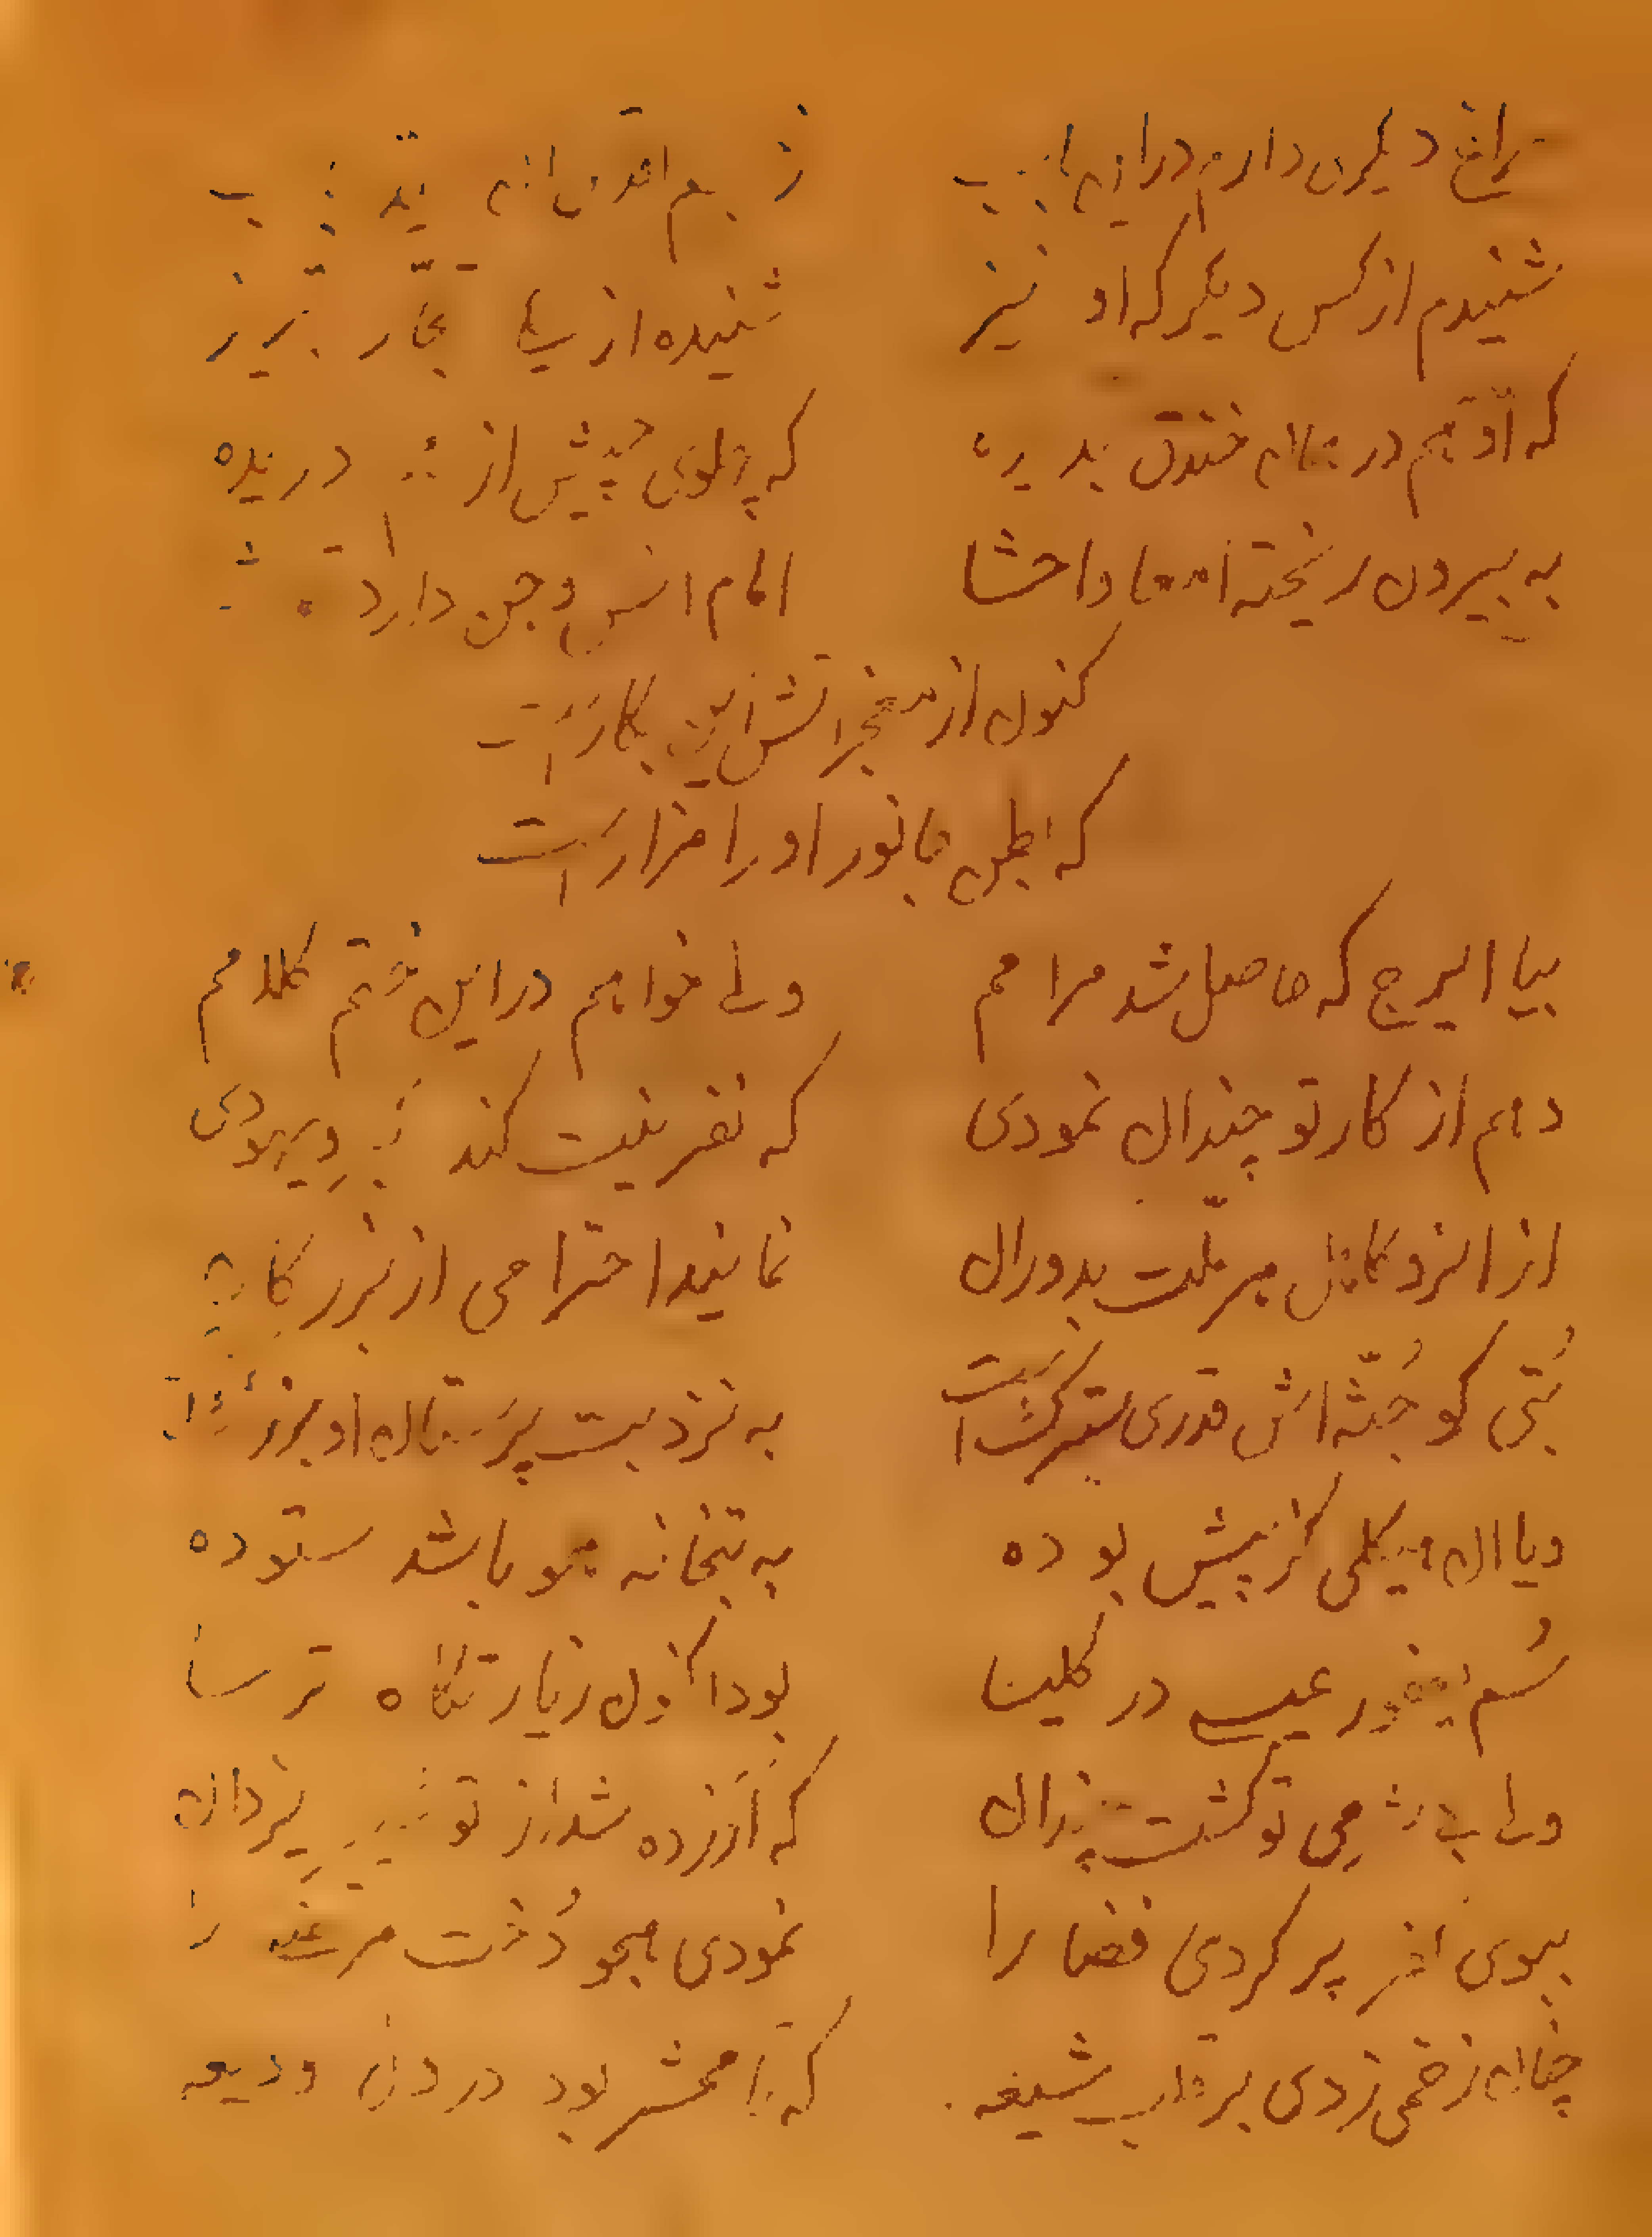 سراغ دیگری دارم در این باب
شنیدم از کس دیگر که او نیز شنیده از تجار تبریز
که او هم در خندق بدیده که پهلوی از دریده
به بیرون ریخته امعا و احشا امام انس و جن دارد
کنون از معجزاتش این بکار است
که بطن جانور او را مزار است
بیا ایرج که حاصل شد مرامم ولی خواهم در این ختم کلامم
دهم از کار تو چندان نمودی که نفرینت کند گبر و یهودی
از انرو کامل هر ملت بدوران نمایند احترامی از بزرگان
بُتی کو جُثّه اش قدری سترگ است به نزد بت پرستان او بزرگ است
ویا ان هیکلی کز پیش بوده به بتخانه همو باشد ستوده
سُم یعفور عیسی در کلیسا بود اکنون زیارتگاه ترسا
ولی بیشرمی تو گشت چندان که آزرده شد از تو یزدان
ببوی پر کردی فضا را نمودی هجو دُخت مرتضی را
چنان زخمی زدی بر قلب شیعه که تا محشر بود در دل ودیعه